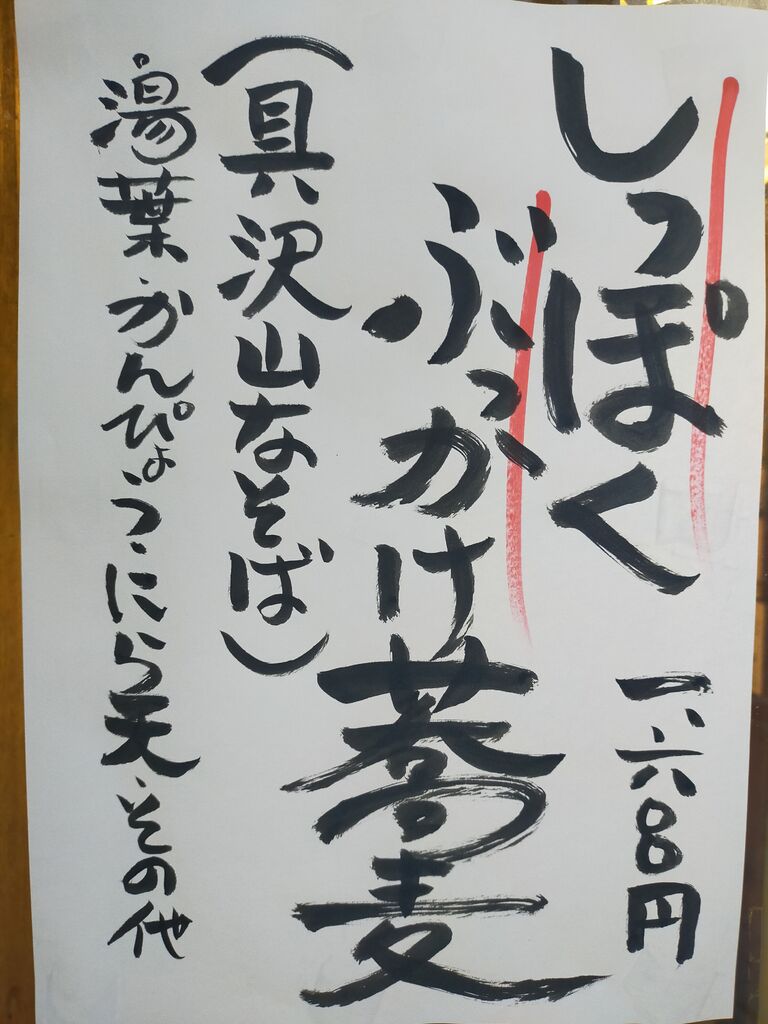 しっぽく
一、六八〇円
ぶっかけ蕎麦
(具沢山なそば)
湯葉・かんぴょう・にら天・その他